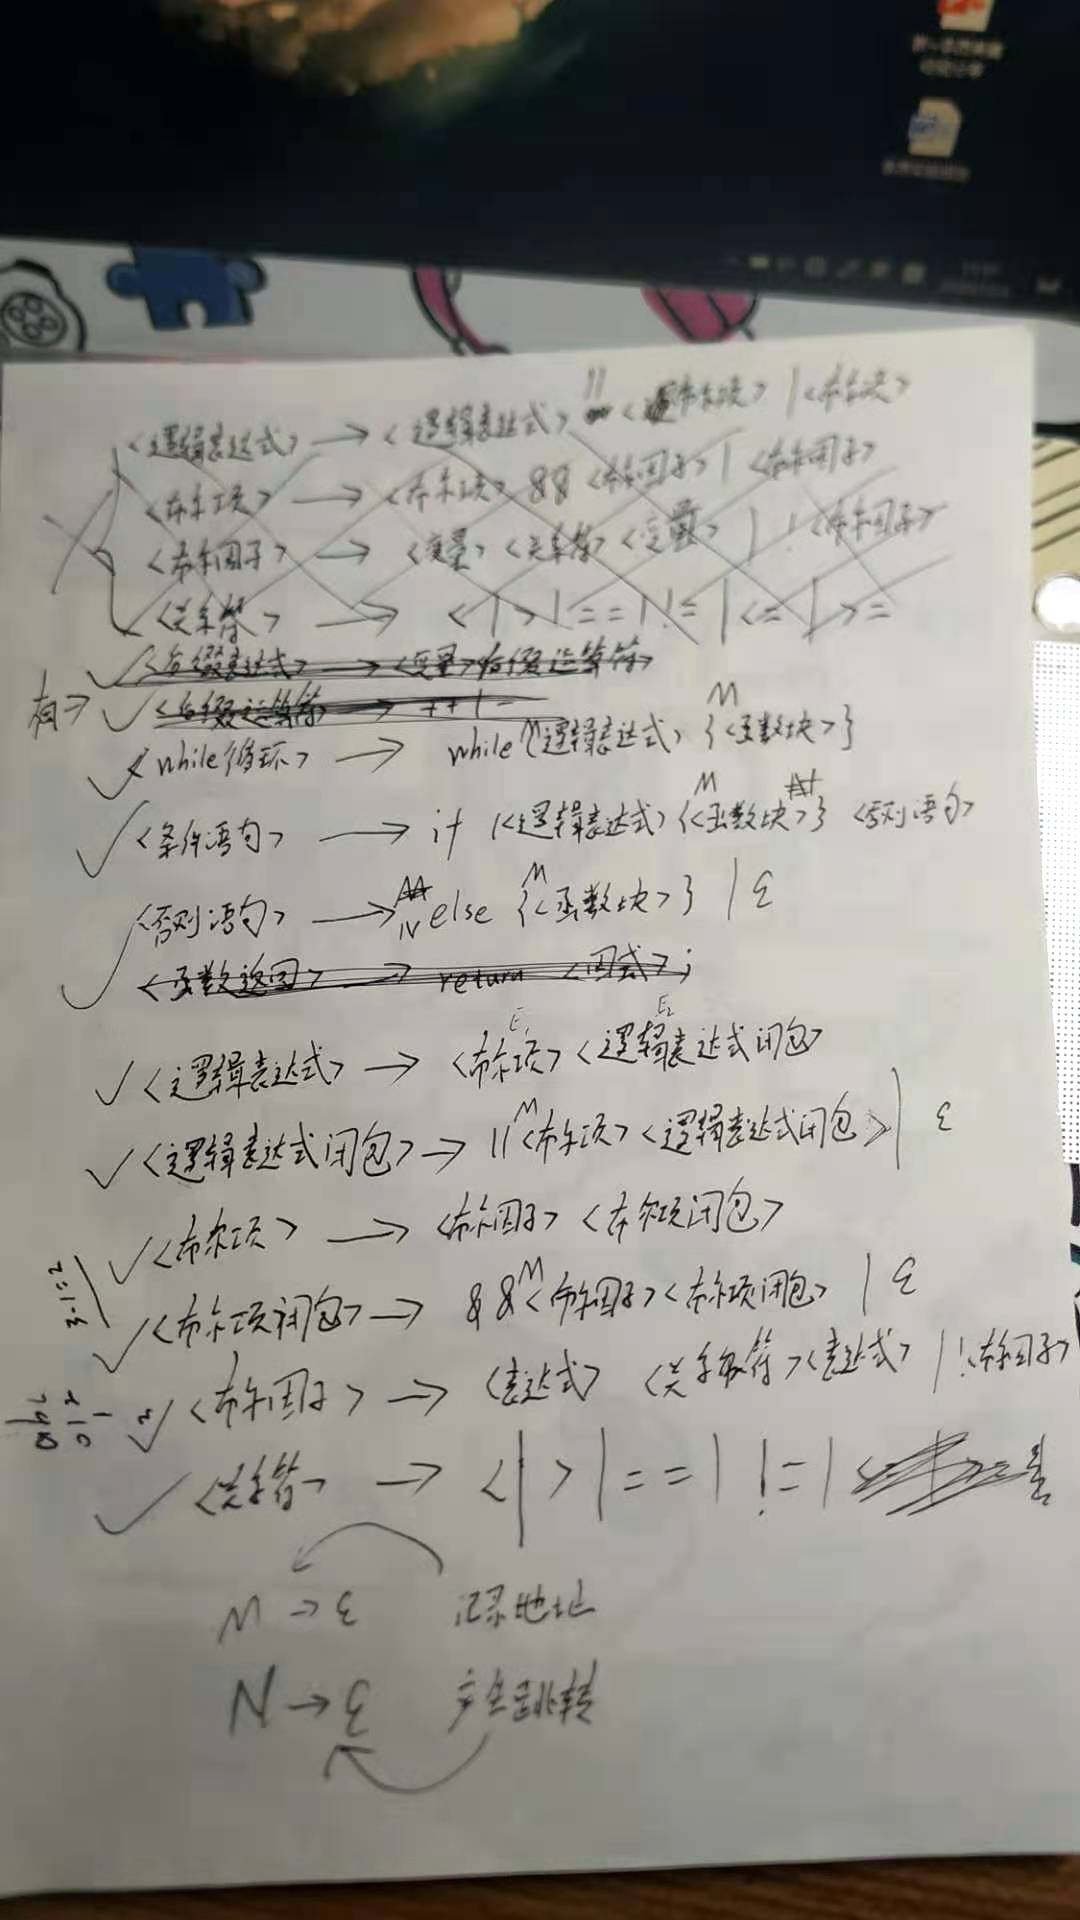 <逻辑表达式> → <逻辑表达式> || <布尔项> | <布尔项>
<布尔项> → <布尔项> && <布尔因子> | <布尔因子>
<布尔因子> → <变量> <关系符> <变量> | ! <布尔因子>
<关系符> → < | > | == | != | <= | >=
<后缀表达式> → <变量> 后缀运算符>
有→ <后缀运算符 → ++ | --
<while循环> → while M(逻辑表达式) { M <函数块> }
<条件语句> → if (<逻辑表达式) { M <函数块> } <否则语句>
<否则语句> → N else { M <函数块> } | ε
<函数返回> → return <因式> ;
E₁ E₂
<逻辑表达式> → <布尔项> <逻辑表达式闭包
<逻辑表达式闭包> → || M <布尔项> <逻辑表达式闭包> | ε
<布尔项> → <布尔因子> <布尔项闭包>
3-1=2
<布尔项闭包> → && M <布尔因子> <布尔项闭包> | ε
<布尔因子> → <表达式> <关系符> <表达式> | ! <布尔因子>
<关系符> → < | > | == | != |
M → ε 记录地址
N → ε 产生跳转